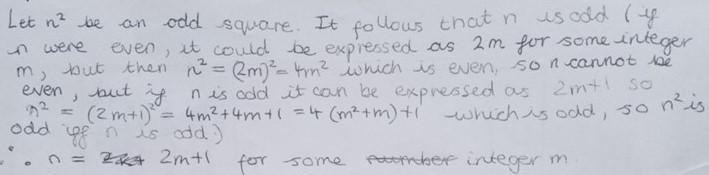 Let n² be an odd square. It follows that n is odd (if
n were even, it could be expressed as 2m for some integer
m, but then n² = (2m)² = 4m² which is even, so n cannot be
even, but if n is odd it can be expressed as 2m+1 so
n² = (2m+1)² = 4m²+4m+1 = 4(m²+m)+1 which is odd, so n² is
odd iff n is odd.)
∴ n = 2m+1 for some integer m